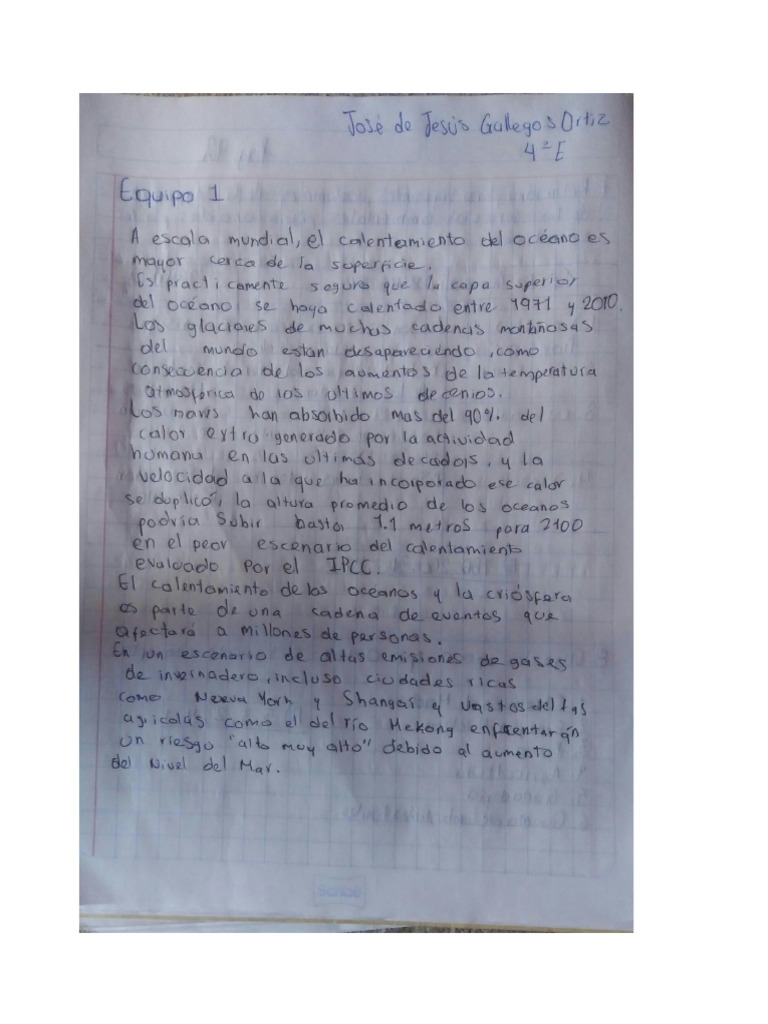 José de Jesús Gallegos Ortiz
4°E
Equipo 1
A escala mundial, el calentamiento del océano es
mayor cerca de la superficie.
Es practicamente seguro que la capa superior
del océano se haya calentado entre 1971 y 2010.
Los glaciares de muchas cadenas montañosas
del mundo estan desapareciendo, como
consecuencia de los aumentos de la temperatura
atmosférica de los ultimos decenios.
Los mares han absorbido mas del 90% del
calor extra generado por la actividad
humana en las ultimas decadas, y la
velocidad a la que ha incorporado ese calor
se duplicó, la altura promedio de los oceanos
podria subir hasta 1.1 metros para 2100
en el peor escenario del calentamiento
evaluado por el IPCC.
El calentamiento de los oceanos y la criósfera
es parte de una cadena de eventos que
afectará a millones de personas.
En un escenario de altas emisiones de gases
de invernadero, incluso ciudades ricas
como Nueva York y Shangai y vastos deltas
agricolas como el del río Mekong enfrentarán
un riesgo "alto muy alto" debido al aumento
del Nivel del Mar.
Scribe